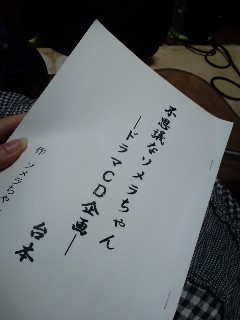 不思議なソメラちゃん
―ドラマCD企画―
台本
作 ソメラちゃん